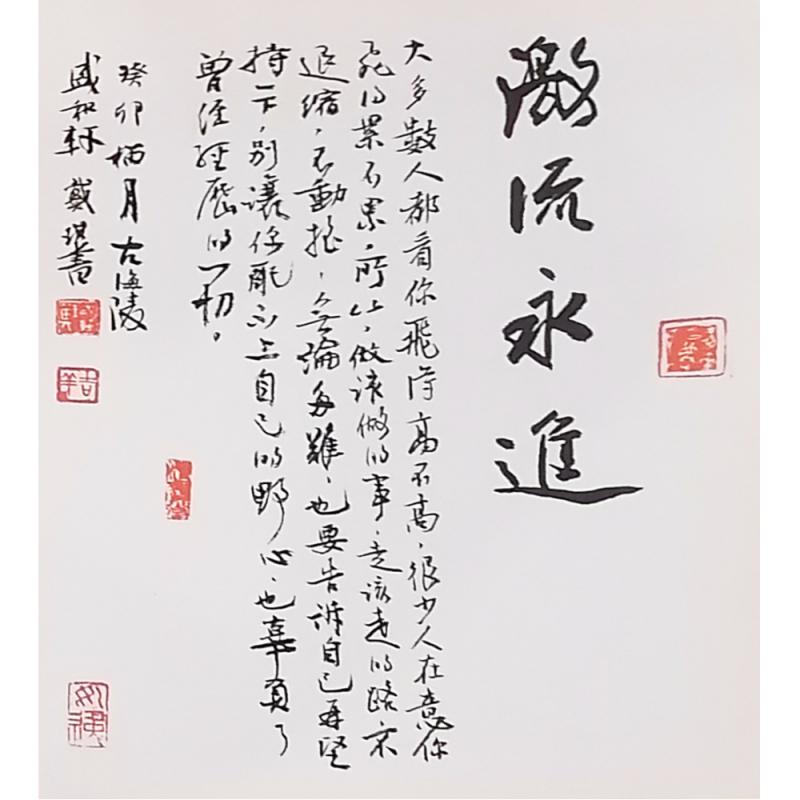 激流永進
大多數人都看你飛得高不高，很少人在意你
飛的累不累，所以，做该做的事，走该走的路不
退缩，不動摇，無論多難，也要告訴自己再坚
持一下，别讓你配不上自己的野心，也辜負了
曾经经歷的一切。
癸卯 月古海陵
盛和轩 戴琪書
吉羊